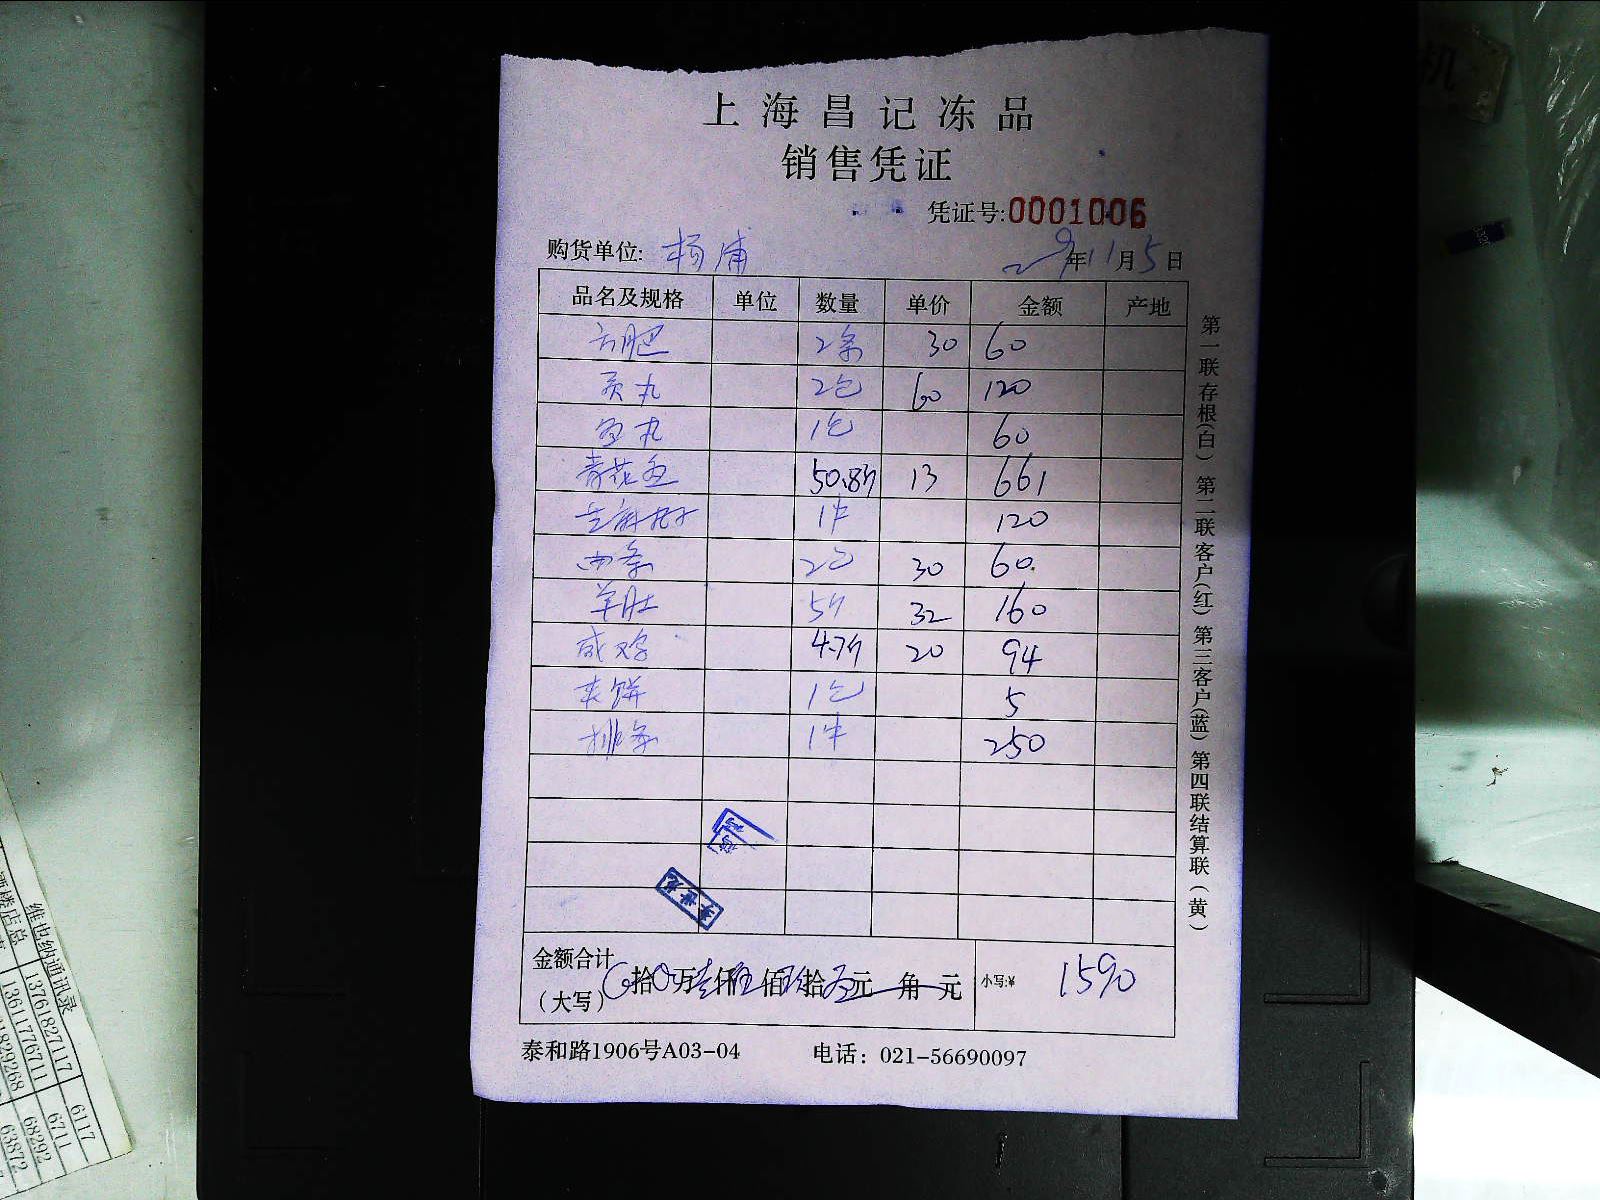 上海昌记冻品
销售凭证
凭证号:0001006
购货单位: 杨浦 年11月5日
品名及规格 单位 数量 单价 金额 产地
2条 30 60
丸 2包 60 120
鱼丸 1包 60
青花鱼 50.8斤 13 661
芝麻 1件 120
2包 30 60.
羊肚 5斤 32 160
咸鸡 4.7斤 20 94
夹饼 1包 5
排条 1件 250
金额合计
(大写) 拾 万 仟 佰 拾 元 角 元 小写:¥ 1590
泰和路1906号A03-04 电话: 021-56690097
第一联存根(白) 第二联客户(红) 第三客户(蓝) 第四联结算联(黄)
李世龙
维也纳通讯录
酒楼店总
13761827117 6117
13611776711 6711
68292
63872
机